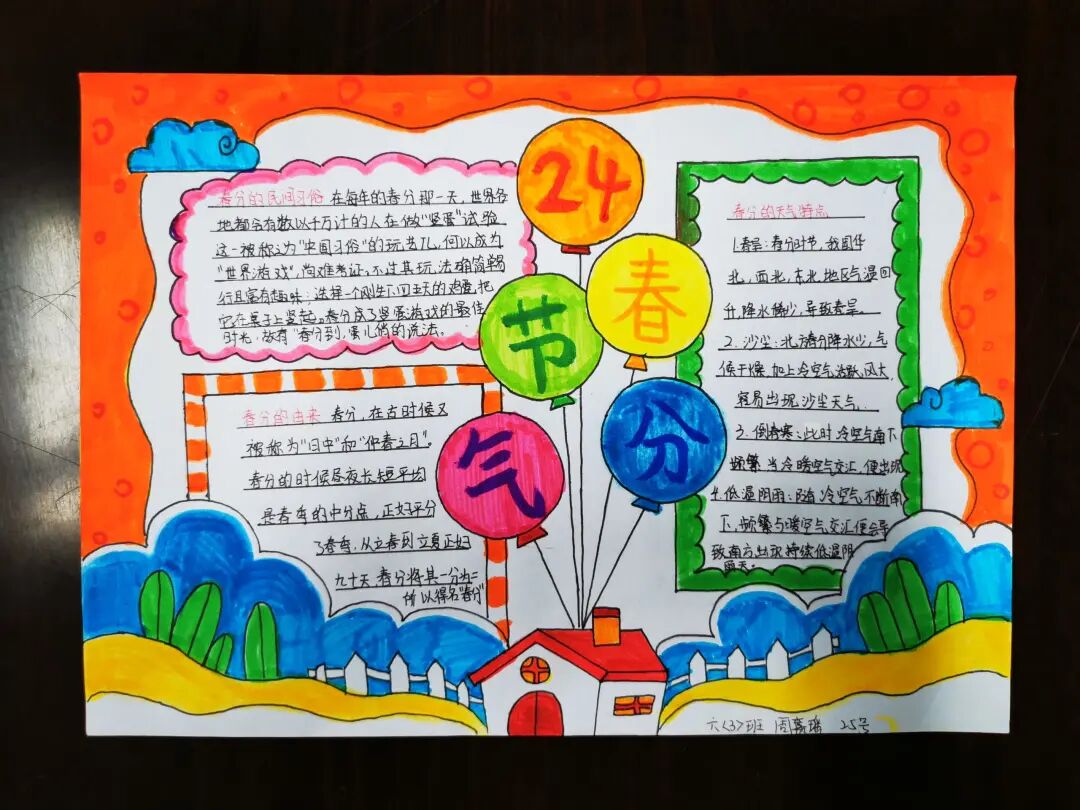 24
节
春
气
分
春分的民间习俗 在每年的春分那一天,世界各
地都会有数以千万计的人在做"竖蛋"试验
这一被称之为"中国习俗"的玩艺儿,何以成为
"世界游戏",尚难考证,不过其玩法确简单易
行且富有趣味:选择一个刚生下四五天的鸡蛋,把
它在桌子上竖起。春分成了竖蛋游戏的最佳
时光,故有"春分到,蛋儿俏的说法。
春分的由来 春分,在古时候又
被称为"日中"和"仲春之月"。
春分的时候昼夜长短平均
是春季的中分点,正好平分
了春季,从立春到立夏正好
九十天,春分将其一分为二
所以得名"春分"
春分的天气特点
1.春旱:春分时节,我国华
北,西北,东北,地区气温回
升,降水稀少,导致春旱。
2.沙尘:北方春分降水少,气
候干燥,加上冷空气活跃,风大,
容易出现沙尘天气.
3.倒春寒:此时冷空气南下
频繁,当冷暖空气交汇,便出现
4.低温阴雨:随冷空气不断南
下,频繁与暖空气交汇便会导
致南方出现持续低温阴
雨天。
六<3>班 周 瑶 25号